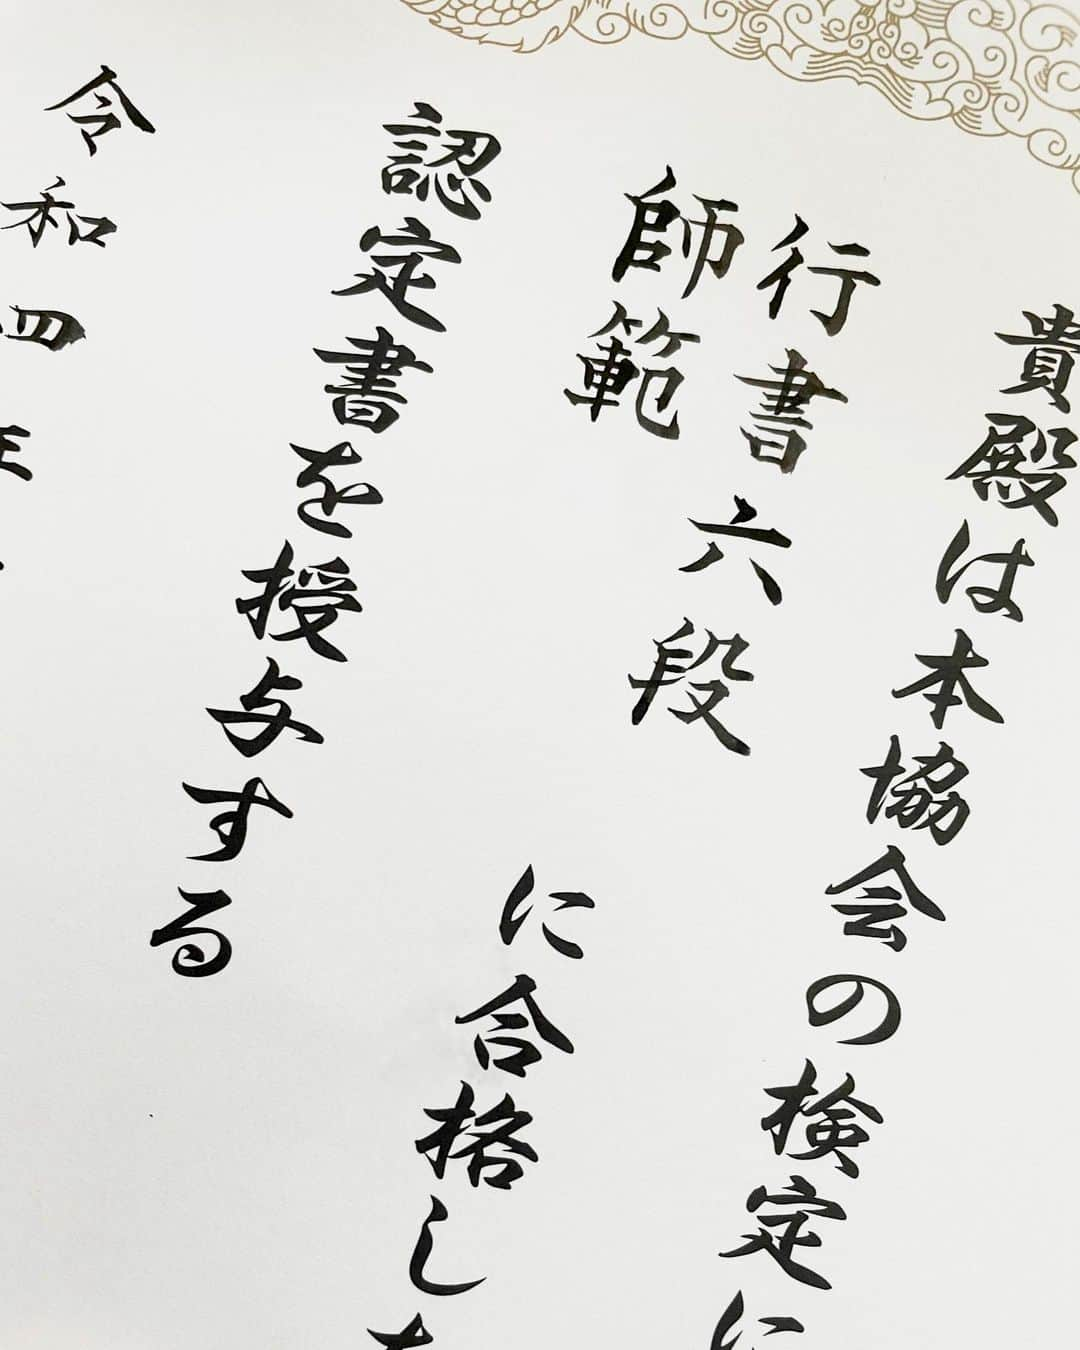 貴殿は本協会の検定に
行書六段
師範
に合格した
認定書を授与する
令和四年